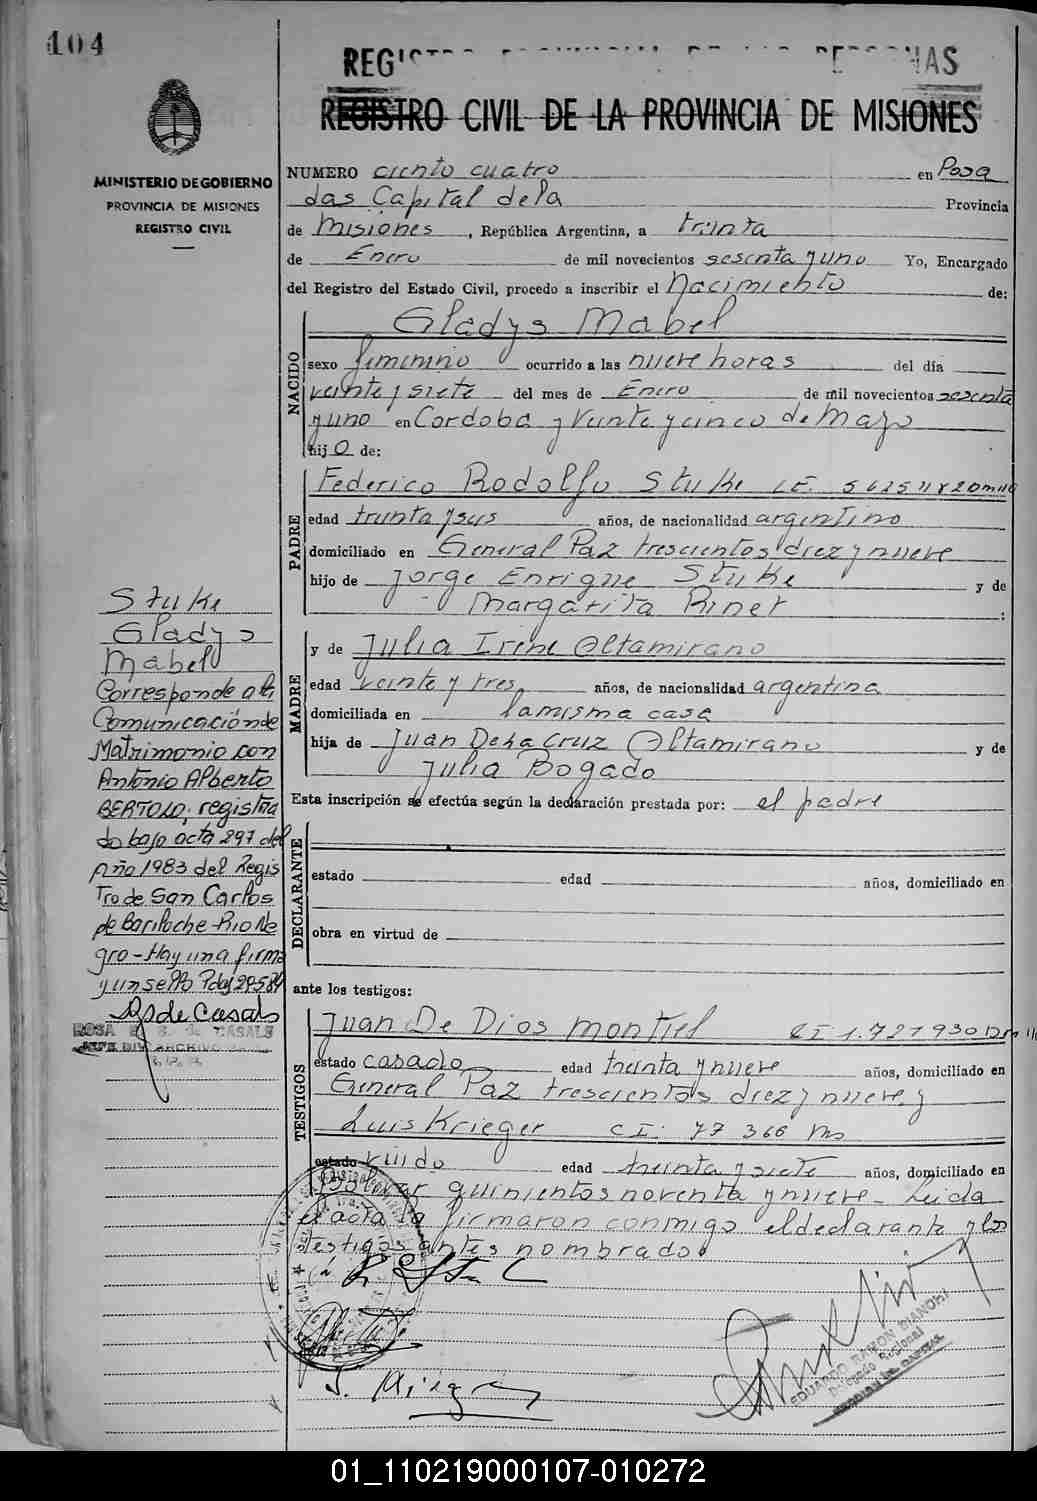 104
REGISTRO PROVINCIAL DE LAS PERSONAS
REGISTRO CIVIL DE LA PROVINCIA DE MISIONES
MINISTERIO DE GOBIERNO
PROVINCIA DE MISIONES
REGISTRO CIVIL
NUMERO ciento cuatro en Posa
das Capital de la Provincia
de Misiones, República Argentina, a treinta
de Enero de mil novecientos sesenta y uno Yo, Encargado
del Registro del Estado Civil, procedo a inscribir el Nacimiento de:
NACIDO
Gladys Mabel
sexo femenino ocurrido a las nueve horas del día
veinte y siete del mes de Enero de mil novecientos sesenta
y uno en Cordoba y Veinte y cinco de Mayo
hij a de:
PADRE
Federico Rodolfo Stuke L.E.
edad treinta y seis años, de nacionalidad argentino
domiciliado en General Paz trescientos diez y nueve
hijo de Jorge Enrique Stuke y de
Margarita Riner :
MADRE
y de Julia Irene Altamirano
edad veinte y tres años, de nacionalidad argentina
domiciliada en la misma casa
hija de Juan De La Cruz Altamirano y de
Julia Bogado
Esta inscripción se efectúa según la declaración prestada por: el padre
DECLARANTE
estado edad años, domiciliado en
obra en virtud de
ante los testigos:
TESTIGOS
Juan De Dios Montiel C I 1.727930
estado casado edad treinta y nueve años, domiciliado en
General Paz trescientos diez y nueve y
Luis Krieger C I. 77 366 Ms
estado viudo edad treinta y siete años, domiciliado en
Bolivar quinientos noventa y nueve - Leida
el acta la firmaron conmigo el declarante y los
testigos antes nombrados
Stuke
Gladys
Mabel
Corresponde a la
Comunicación de
Matrimonio con
Antonio Alberto
BERTOLO; registra
do bajo acta 297 del
año 1983 del Regis
tro de San Carlos
de Bariloche - Rio Ne
gro - Hay una firma
y un sello Pdas 29-5-84
R de Casals
ROSA E. S. de CASALS
JEFE DIV. ARCHIVO
EDUARDO RAMON BIANCHI
Delegado Regional
01_110219000107-010272